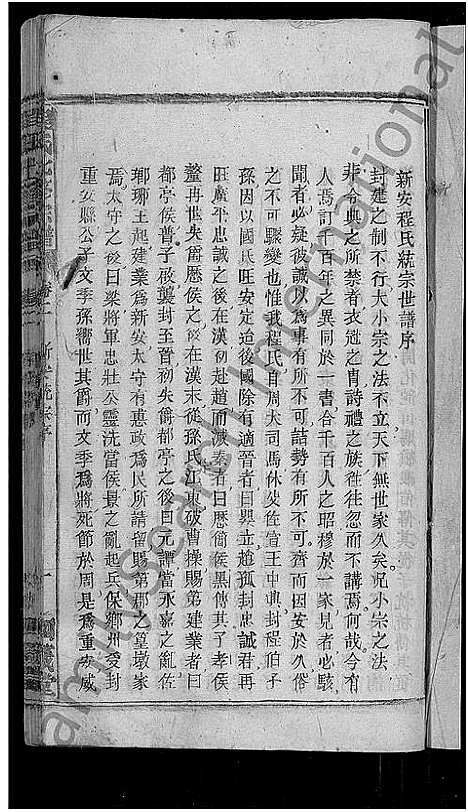 新安程氏統宗世譜序
封建之制不行大小宗之法不立天下無世家久矣況小宗之法
非令典之所禁者衣冠之胄詩禮之族徃徃忽而不講焉何哉今有
人焉訂千百年之異同於一書合千百人之昭穆於一家見者必駭
聞者必疑彼誠以爲事有所不可詰勢有所不可齊而因安於久俗
之不可驟變也惟我程氏自周大司馬休父佐宣王中典封程伯子
孫因以國氏旺安定迨後國除有適晉者曰嬰立趙孤封忠誠君再
旺廣平忠誠之後在漢初趙而滅秦者曰歷簡侯黑傳其子孝侯
釐再世失爵歷侯之後在漢末從孫氏江東破曹操賜第建業者曰
都亭侯普子咨襲封至晉初失爵都亭之後曰元譚當永嘉之亂佐
瑯琊王起建業爲新安太守有惠政爲民所請留賜第郡之篁墩家
焉太守之後曰梁將軍忠壯公靈洗當侯景之亂起兵保鄉州受封
重安縣公子文季孫嚮世其爵而文季爲將死節於周是爲重安威
卷一
Jiamu Research International